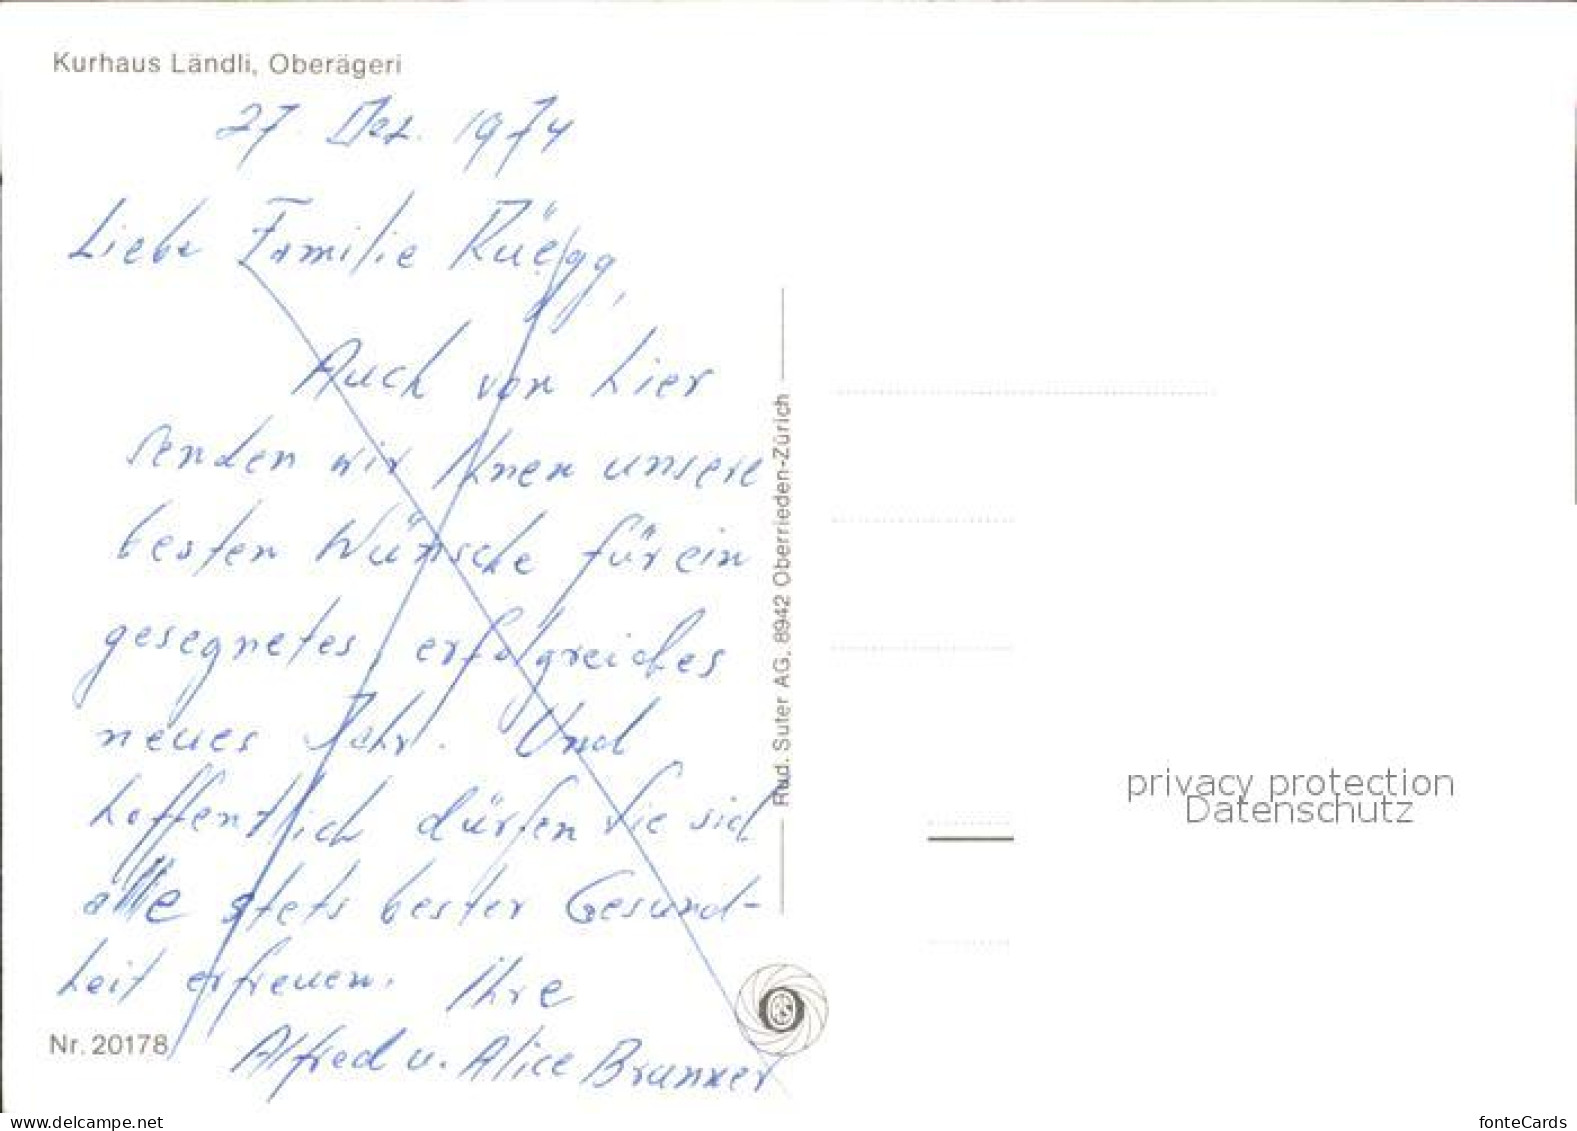 Kurhaus Ländli, Oberägeri
27. Dez. 1974
Liebe Familie Rüegg,
Auch von hier
senden wir Ihnen unsere
besten Wünsche für ein
gesegnetes, erfolgreiches
neues Jahr. Und
hoffentlich dürfen Sie sich
alle stets bester Gesund-
heit erfreuen. Ihre
Alfred u. Alice Brunner
Nr. 20178
Rud. Suter AG, 8942 Oberrieden-Zürich
privacy protection
Datenschutz
www.delcampe.net
fonteCards